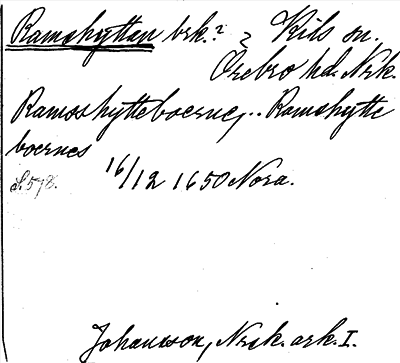 Ramshyttan brk.? i Kils sn.
Örebro hd. Nrk.
Ramsshytteboerne,.. Ramshytte
boernes
s. 578.
16/12 1650 Nora.
Johansson, Nrsk. ark. I.